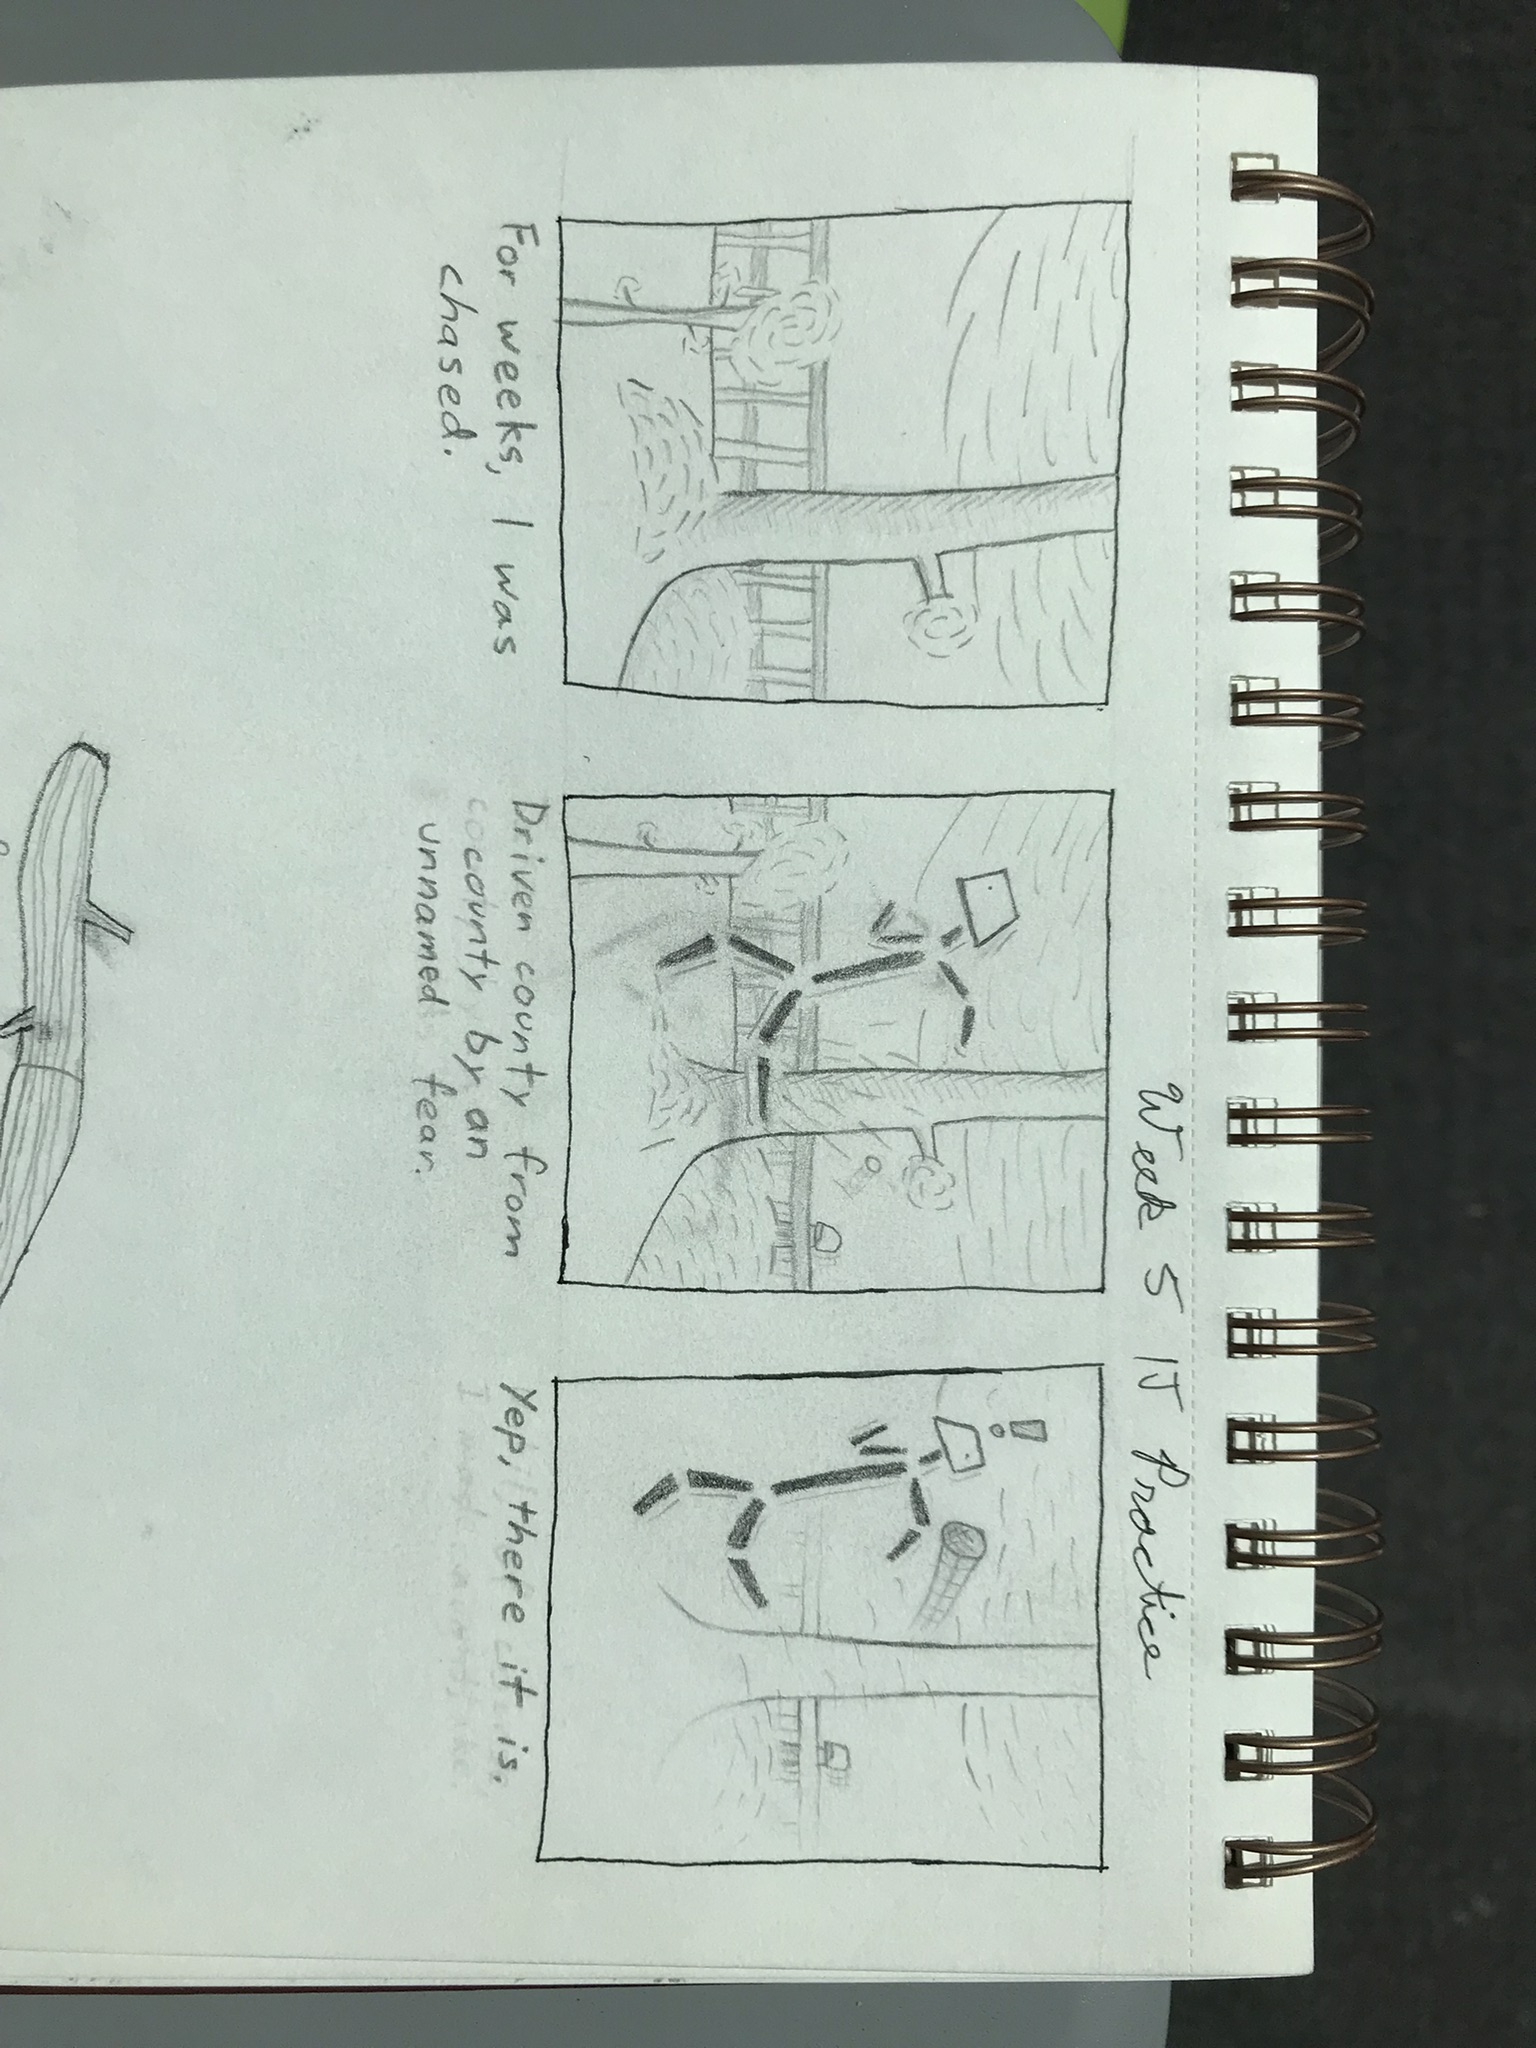 Week 5 IJ Practice
For weeks, I was
chased.
Driven county from
county by an
unnamed fear.
Yep, there it is.